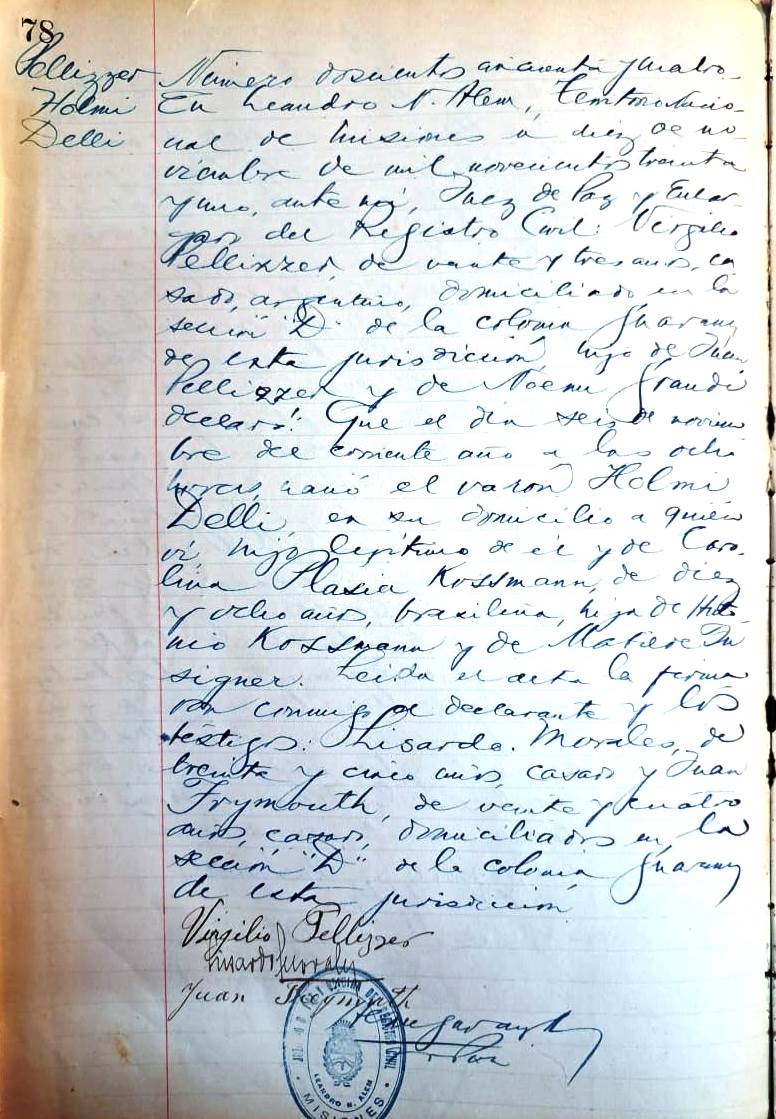 78
Pellizzer
Holmi
Delli
Número doscientos cincuenta y cuatro.
En Leandro N. Alem, Territorio Nacio-
nal de Misiones a diez de no-
viembre de mil novecientos treinta
y uno, ante mí, Juez de Paz y Encar-
gado del Registro Civil: Virgilio
Pellizzer, de veinte y tres años, ca
sado, argentino, domiciliado en la
sección "D" de la colonia Guarany
de esta jurisdicción, hijo de Juan
Pellizzer y de Noemi Grandi
declaró: Que el día seis de noviem
bre del corriente año a las ocho
horas, nació el varón Holmi
Delli, en su domicilio a quien
ví hijo legítimo de él y de Caro-
lina Plasia Kossmann, de diez
y ocho años, brasileña, hija de Anto-
nio Kossmann y de Matilde
signer. Leida el acta la firma
ron conmigo el declarante y los
testigos: Lisardo Morales, de
treinta y cinco años, casado y Juan
Frymouth, de veinte y cuatro
años, casado, domiciliados en la
sección "D" de la colonia Guarany
de esta jurisdicción
Virgilio Pellizzer
Lisardo Morales
Juan Freymuth
LEANDRO N. ALEM
MISIONES